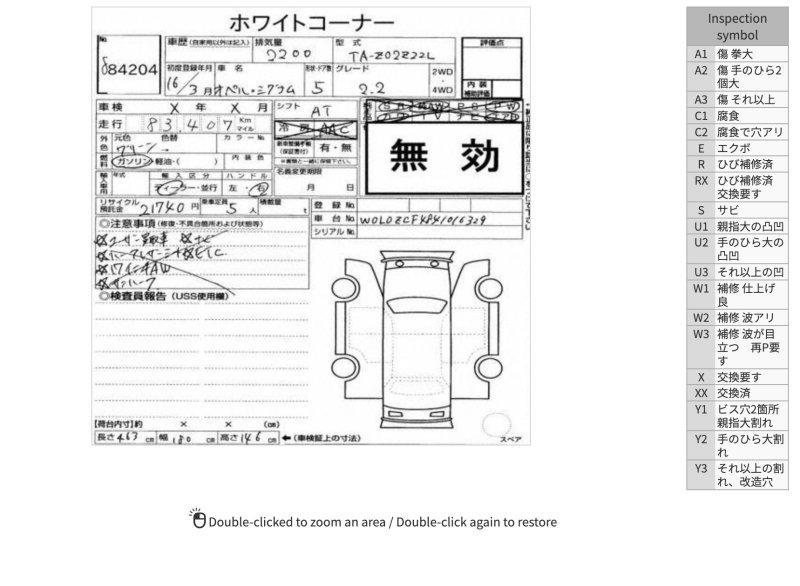 ホワイトコーナー
No. 84204
車歴 (自家用以外は記入)
排気量 2200
型式 TA-Z02Z22L
評価点
初度登録年月 16/3月
車名 オペル・シグナム
形状・ドア数 5
グレード 2.2
2WD
4WD
内装
補助評価
車検 X 年 X 月
シフト AT
走行 83,407 Km マイル
冷房 AAC
外色 元色 グリーン 色替 → カラーNo.
燃料 ガソリン・軽油・( ) 内装色
有・無
無効
輸入車用 年式 輸入区分 ディーラー・並行 ハンドル 左・右
名義変更期限
月 日
リサイクル預託金 21740 円
乗車定員 5 人
積載量 t
登録No.
車台No. W0L0ZCF4841016329
シリアルNo.
◎注意事項 (修復・不具合箇所および状態等)
ユーザー買取車 ナビ
ETC
17インチAW
◎検査員報告 (USS使用欄)
【荷台内寸】約 × × (cm)
長さ 463 cm 幅 180 cm 高さ 146 cm ←(車検証上の寸法)
スペア
Inspection symbol
A1 傷 拳大
A2 傷 手のひら2個大
A3 傷 それ以上
C1 腐食
C2 腐食で穴アリ
E エクボ
R ひび補修済
RX ひび補修済 交換要す
S サビ
U1 親指大の凸凹
U2 手のひら大の凸凹
U3 それ以上の凹
W1 補修 仕上げ良
W2 補修 波アリ
W3 補修 波が目立つ 再P要す
X 交換要す
XX 交換済
Y1 ビス穴2箇所 親指大割れ
Y2 手のひら大割れ
Y3 それ以上の割れ、改造穴
Double-clicked to zoom an area / Double-click again to restore